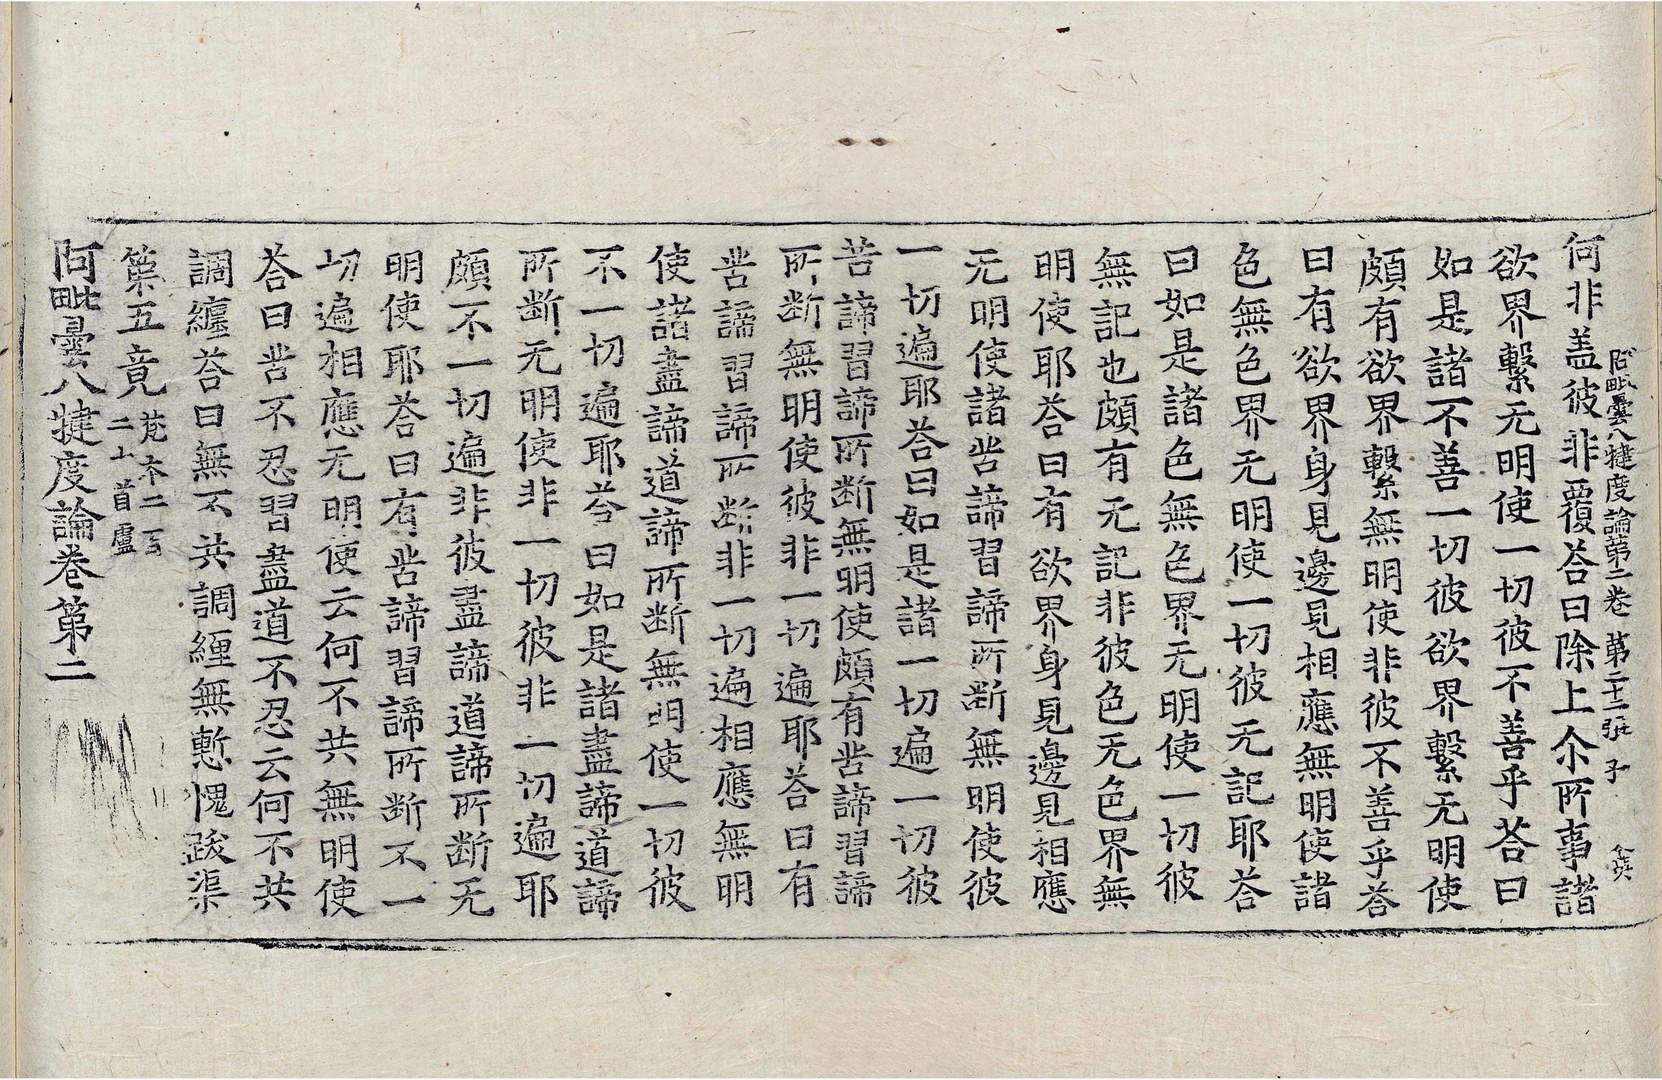 阿毗曇八犍度論第二卷　第二十三張　子
何非盖彼非覆荅曰除上尒所事諸
欲界繫无明使一切彼不善乎荅曰
如是諸不善一切彼欲界繫无明使
頗有欲界繫無明使非彼不善乎荅
曰有欲界身見邊見相應無明使諸
色無色界无明使一切彼无記耶荅
曰如是諸色無色界无明使一切彼
無記也頗有无記非彼色无色界無
明使耶荅曰有欲界身見邊見相應
无明使諸甞諦習諦所断無明使彼
一切遍耶荅曰如是諸一切遍一切彼
苦諦習諦所断無明使頗有甞諦習諦
所断無明使彼非一切遍耶荅曰有
甞諦習諦所断非一切遍相應無明
使諸盡諦道諦所断無明使一切彼
不一切遍耶荅曰如是諸盡諦道諦
所断无明使非一切彼非一切遍耶
頗不一切遍非彼盡諦道諦所断无
明使耶荅曰有甞諦習諦所断不一
切遍相應无明使云何不共無明使
荅曰甞不忍習盡道不忍云何不共
調纏荅曰無不共調纏無慙愧跋渠
第五竟梵本二百二十首盧
阿毗曇八犍度論卷第二